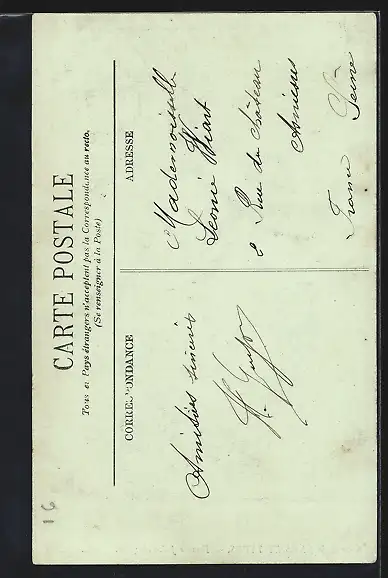 CARTE POSTALE
Tous les Pays étrangers n'acceptent pas la Correspondance au recto.
(Se renseigner à la Poste)
CORRESPONDANCE
Amitiés sincères
ADRESSE
Mademoiselle
Léonie Wiart
8 Rue du Château
Asnières
France Seine
16